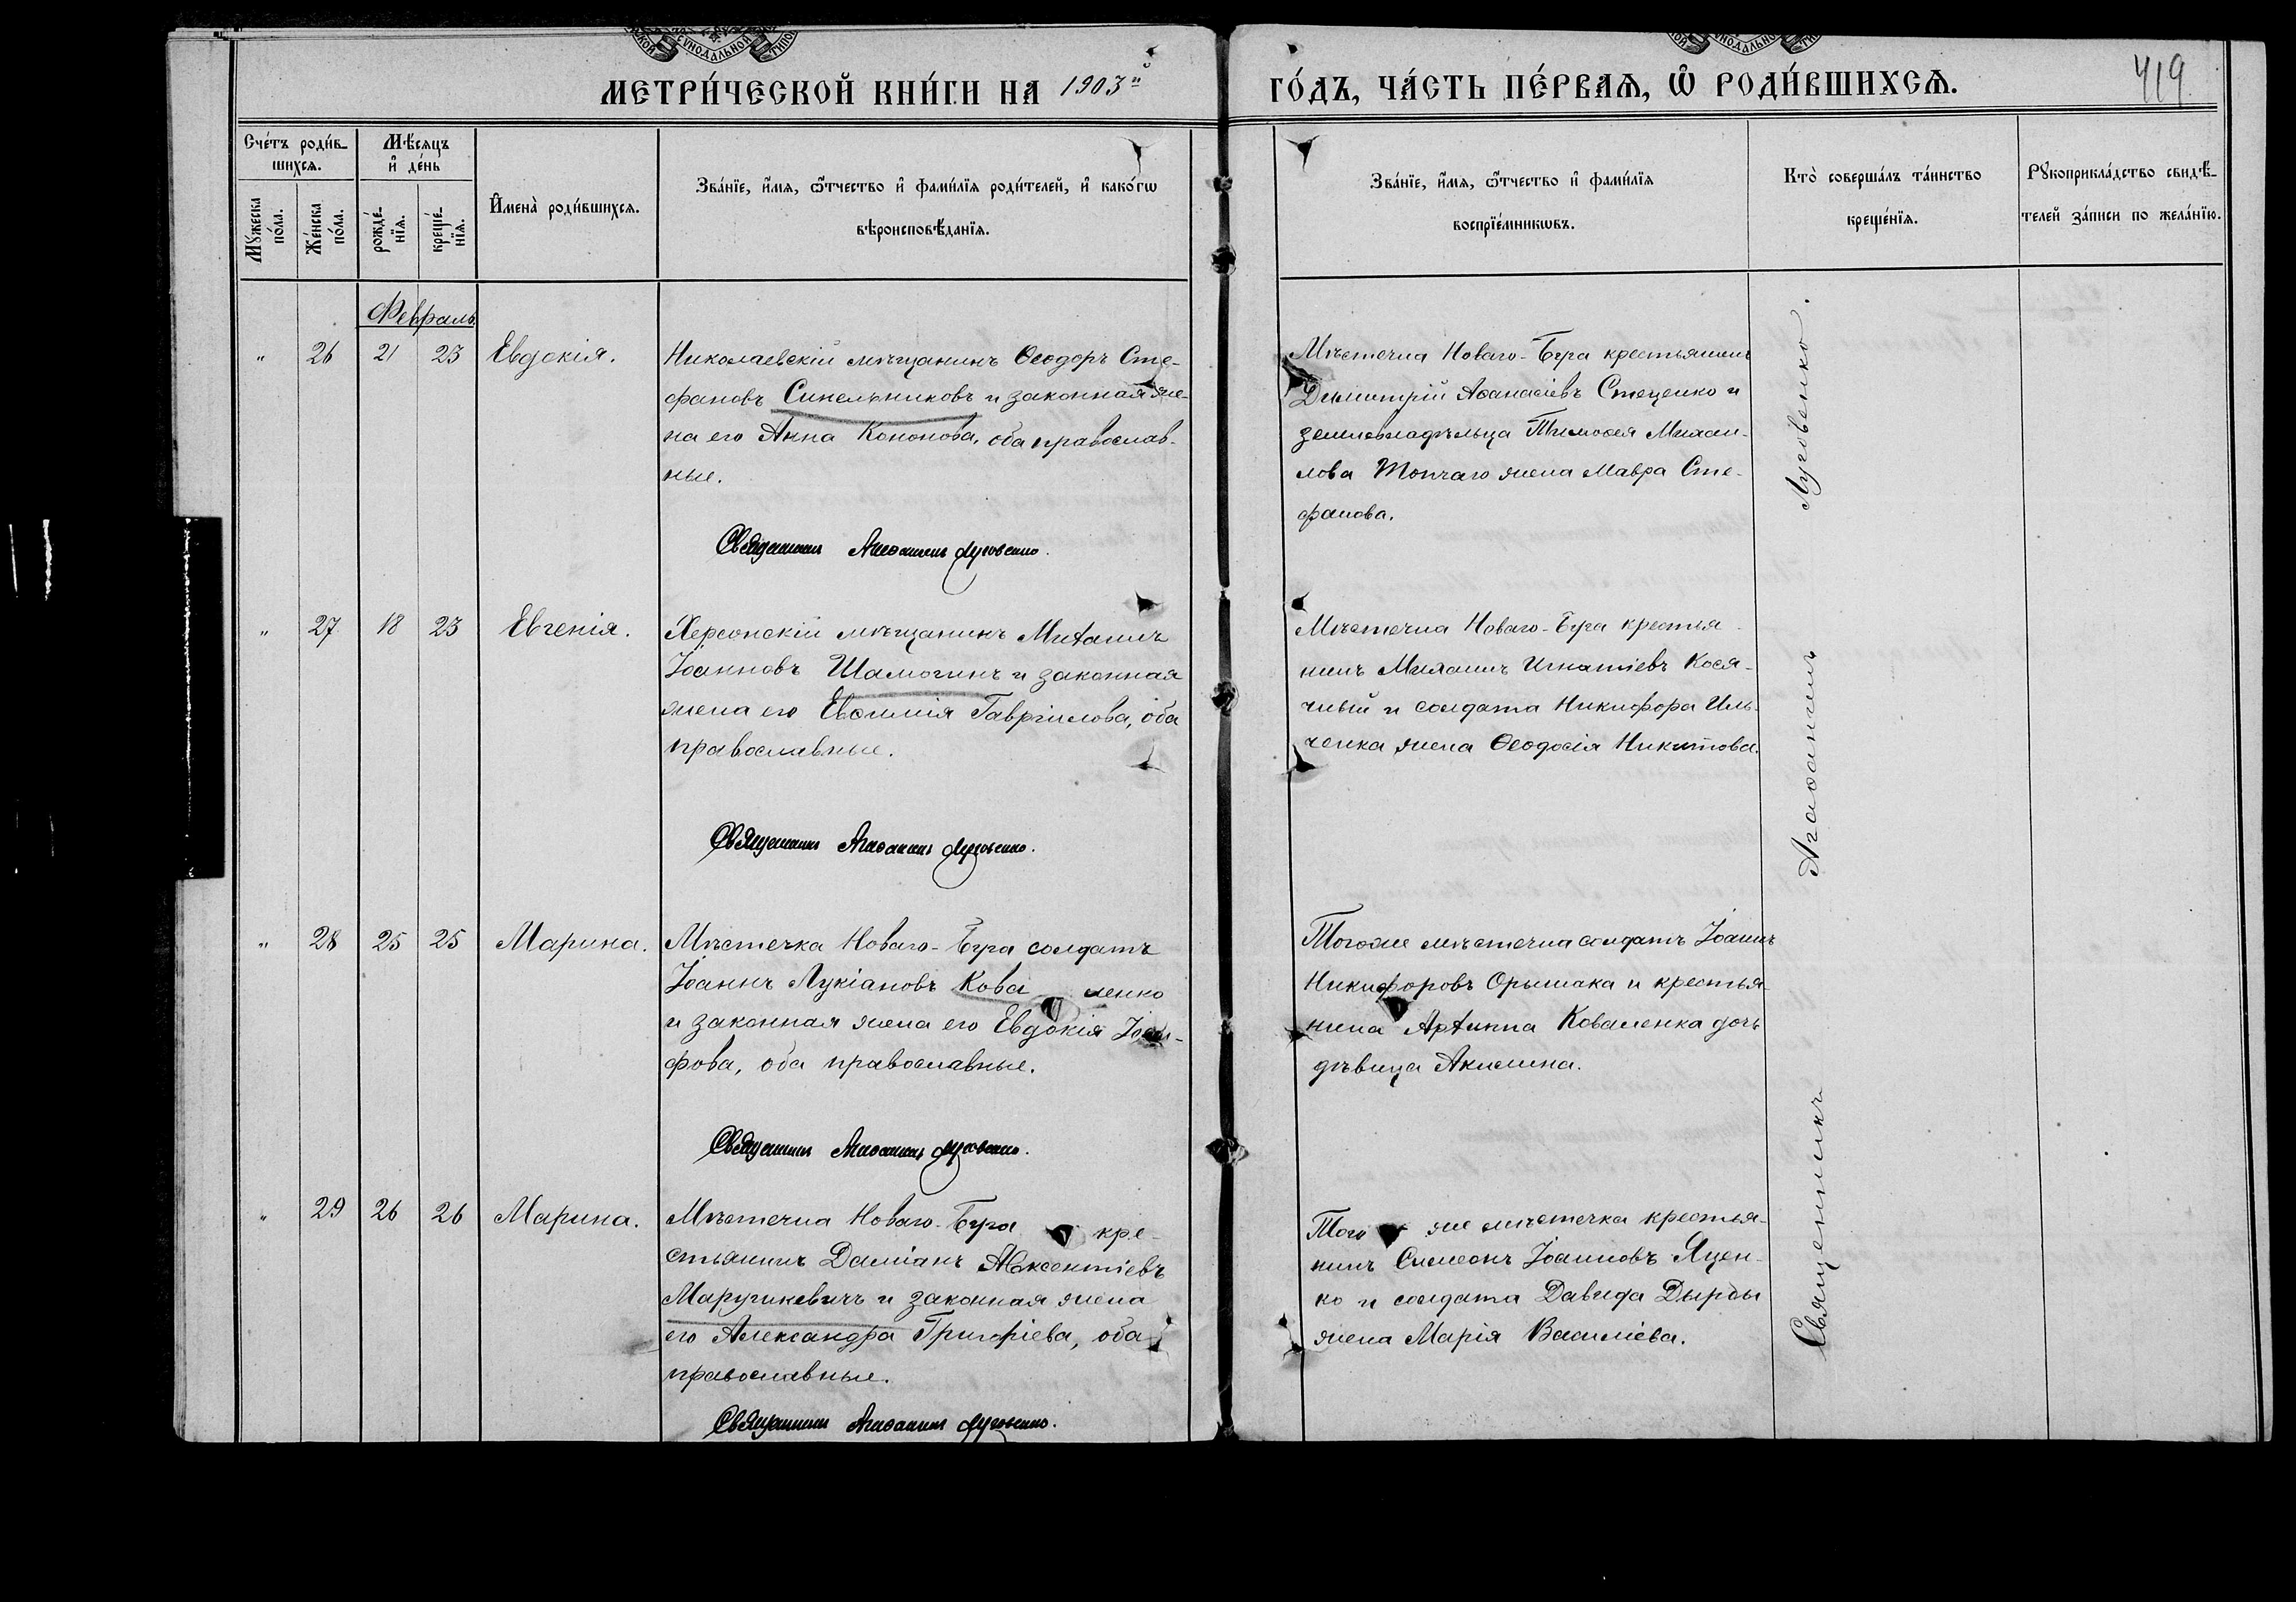 МЕТРИ́ЧЕСКОЙ КНИ́ГИ НА 1903й ГО́ДЪ, ЧА́СТЬ ПЕ́РВАѦ, Ѡ҆ РОДИ́ВШИХСѦ.
419
Сче́тъ роди́в-
шихсѧ.
Мѣ́сѧцъ
и҆ де́нь
Мꙋ́жеска
по́ла.
Же́нска
по́ла.
рожде́-
нїѧ.
креще́-
нїѧ.
И҆мена̀ роди́вшихсѧ.
Зва́нїе, и҆́мѧ, ѻ҆́тчество и҆ фами́лїѧ роди́телей, и҆ како́гѡ
вѣроисповѣ́данїѧ.
Зва́нїе, и҆́мѧ, ѻ҆́тчество и҆ фами́лїѧ
воспрїе́мникѡвъ.
Кто̀ соверша́лъ та́инство
креще́нїѧ.
Рꙋкоприкла́дство свидѣ́-
телей за́писи по жела́нїю.
Февраль
" 26 21 23 Евдокія.
Николаевскій мѣщанинъ Ѳеодоръ Сте-
фановъ Синельниковъ и законная же-
на его Анна Кононова, оба православ-
ные.
Священникъ Агаѳаникъ Луговенко.
Мѣстечка Новаго-Буга крестьянинъ
Димитрій Аѳанасіевъ Стеценко и
землевладѣльца Тимоѳея Михаи-
лова Топчаго жена Мавра Сте-
фанова.
" 27 18 23 Евгенія.
Херсонскій мѣщанинъ Михаилъ
Іоанновъ Шамогинъ и законная
жена его Евѳимія Гавріилова, оба
православные.
Священникъ Агаѳаникъ Луговенко.
Мѣстечка Новаго-Буга крестья-
нинъ Михаилъ Игнатіевъ Кося-
чный и солдата Никифора Иль-
ченка жена Ѳеодосія Никитова.
" 28 25 25 Марина.
Мѣстечка Новаго-Буга солдатъ
Іоаннъ Лукіановъ Кова ленко
и законная жена его Евдокія Іоси-
фова, оба православные.
Священникъ Агаѳаникъ Луговенко.
Тогоже мѣстечка солдатъ Іоаннъ
Никифоровъ Орышака и крестья-
нина Архиппа Коваленка дочь
дѣвица Акилина.
" 29 26 26 Марина.
Мѣстечка Новаго-Буга кре-
стьянинъ Даміанъ Авксентіевъ
Маручкевичъ и законная жена
его Александра Григоріева, оба
православные.
Священникъ Агаѳаникъ Луговенко.
Того же мѣстечка крестья-
нинъ Симеонъ Іоанновъ Яцен-
ко и солдата Давида Дырды
жена Марія Василіева.
Священникъ Агаѳаникъ Луговенко.